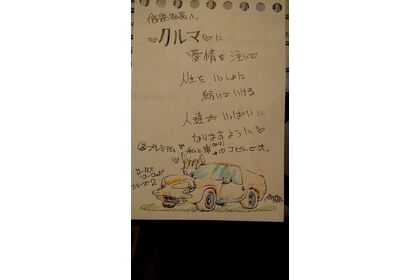 クルマに
愛情を注いで
人生をいっしょに
紡いでいける
人達がいっぱいに
なりますように
プレミアム
私と車
のコピーです。
ロータス
ヨーロッパ
シリーズ2